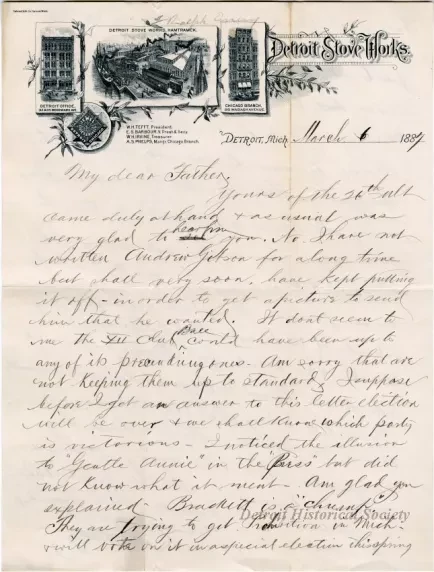 DETROIT STOVE WORKS, HAMTRAMCK.
Detroit Stove Works.
DETROIT OFFICE,
CHICAGO BRANCH,
W.H. TEFFT, President.
E.S. BARBOUR, V. Prest & Secy.
W.H. IRVINE, Treasurer
A.G. PHELPS, Mang'r Chicago Branch.
DETROIT, Mich. March 6 1887
My dear Father,
Yours of the 26th ult
came duly at hand & as usual was
very glad to hear from you. No I have not
written Andrew for a long time
but shall very soon, have kept putting
it off - in order to get a picture to send
him that he wanted. It dont seem to
me the XII Club Race could have been up to
any of its preceeding ones - Am sorry that are
not keeping them up to standard, I suppose
before I get an answer to this letter election
will be over & we shall know which party
is victorious - I noticed the illusion
to "Gentle Annie" in the "Press" but did
not know what it ment - Am glad you
explained - Brackett is a
They are trying to get in Mich.
& will vote on it in a special election this spring
Detroit Historical Society